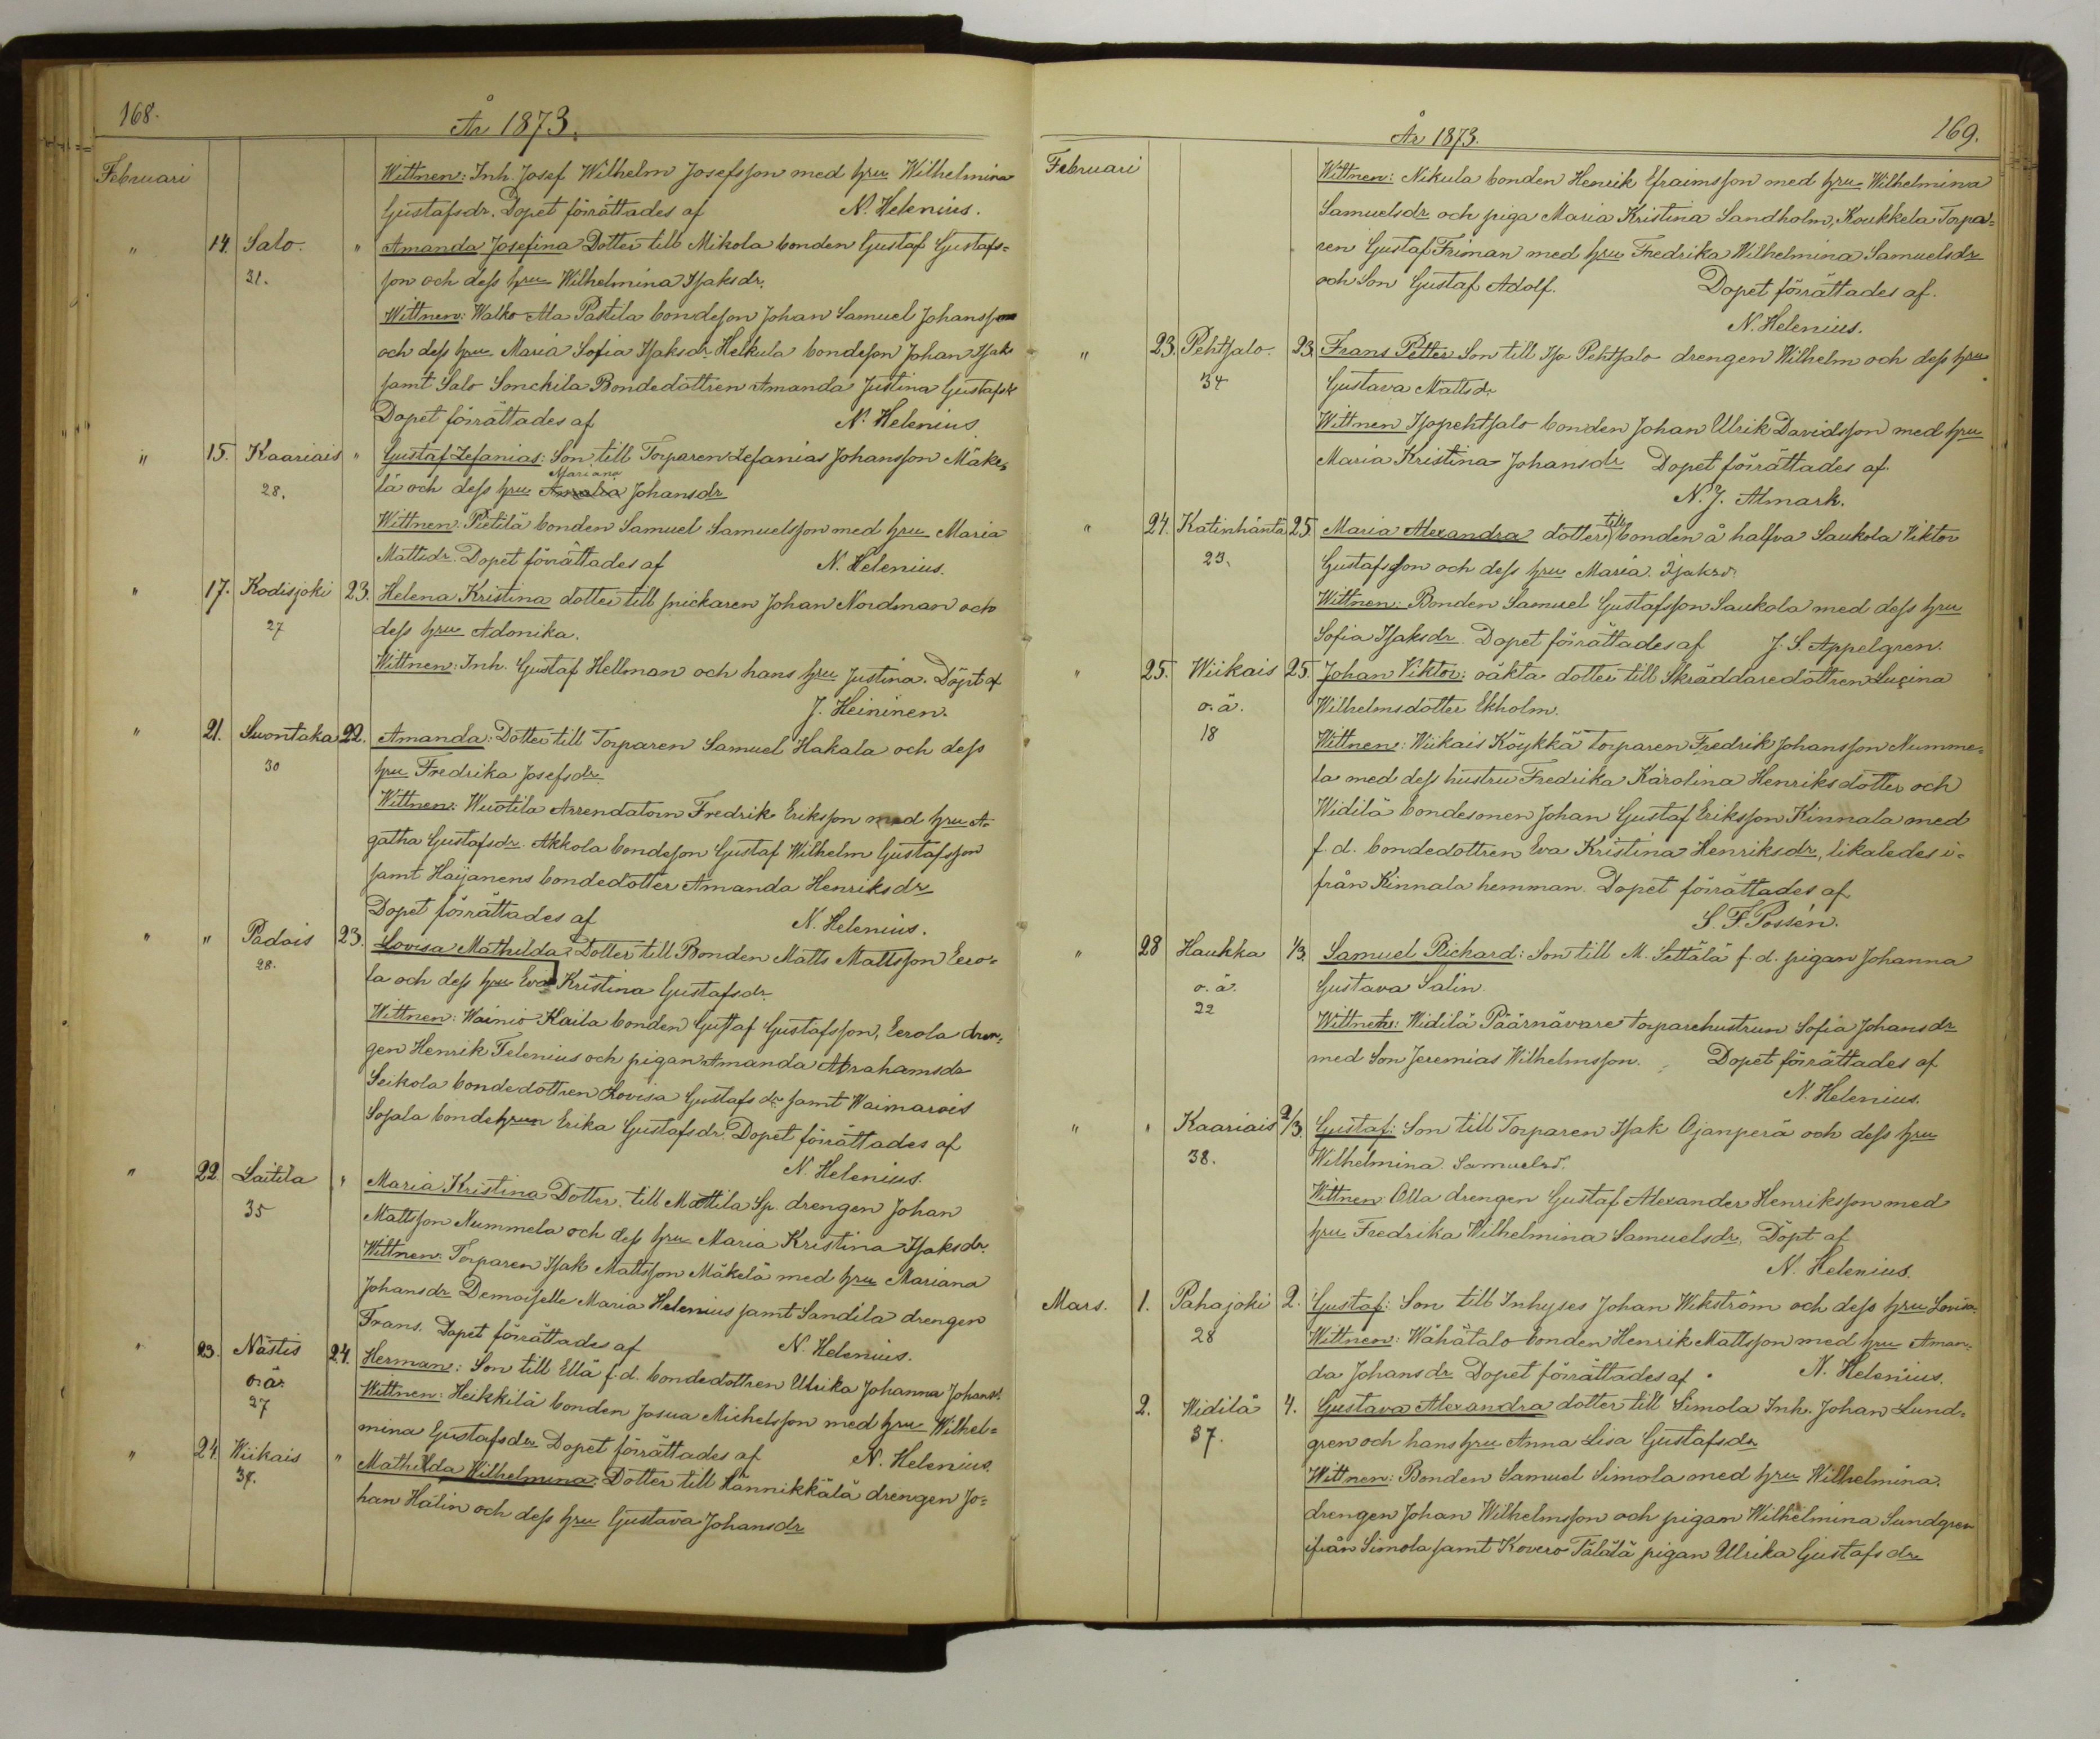 168.
År 1873.
Februari
Wittnen: Inh. Josef Wilhelm Josefsson med hru Wilhelmina
Gustafsdr. Dopet förrättades af N. Helenius.
" 14. Salo. " Amanda Josefina Dotter till Mikola bonden Gustaf Gustafs=
31. son och dess hru Wilhelmina Isaksdr.
Wittnen: Walko Ala Pastila bondeson Johan Samuel Johansson
och dess hru Maria Sofia Isaksdr. Helkula bondeson Johan Isaks
samt Salo Sonckila Bondedottren Amanda Justina Gustafsdr
Dopet förrättades af N. Helenius
" 15. Kaariais " Gustaf Zefanias: Son till Torparen Zefanias Johansson Mäke=
Mariana
28. lä och dess hru Amalia Johansdr
Wittnen: Pietilä bonden Samuel Samuelsson med hru Maria
Mattsdr. Dopet förrättades af N. Helenius.
" 17. Kodisjoki 23. Helena Kristina dotter till snickaren Johan Nordman och
27 dess hru Adonika.
Wittnen: Inh. Gustaf Hellman och hans hru Justina. Döpt af
J. Heininen.
" 21. Suontaka 22. Amanda: Dotter till Torparen Samuel Hakala och dess
30 hru Fredrika Josefsdr
Wittnen: Wuotila Arrendatorn Fredrik Eriksson med hru A-
gatha Gustafsdr. Akkola bondeson Gustaf Wilhelm Gustafsson
samt Haijanens bondedotter Amanda Henriksdr
Dopet förrättades af N. Helenius.
" " Padois 23. Lovisa Mathilda: Dotter till Bonden Matts Mattsson Eero=
28. la och dess hru Eva Kristina Gustafsdr.
Wittnen: Wainio Kaila bonden Gustaf Gustafsson, Eerola dren=
gen Henrik Telenius och pigan Amanda Abrahamsdr
Seikola bondedottren Lovisa Gustafsdr. samt Waimarois
Sopala bondehrun Erika Gustafsdr. Dopet förrättades af
N. Helenius.
" 22. Laitila " Maria Kristina Dotter. till Mattila Sp. drengen Johan
35 Mattsson Nummela och dess hru Maria Kristina Isaksdr.
Wittnen: Torparen Isak Mattsson Mäkelä med hru Mariana
Johansdr Demoiselle Maria Helenius samt Sandila drengen
Frans. Dopet förrättades af N. Helenius.
" 23. Nästis 24. Herman: Son till Ellä f.d. bondedottren Ulrika Johanna Johansd.
o.ä. Wittnen: Heikkilä bonden Josua Michelsson med hru Wilhel=
27 mina Gustafsdr Dopet förrättades af N. Helenius.
" 24. Wiikais " Mathilda Wilhelmina: Dotter till Männikkälä drengen Jo=
34. han Hälin och dess hru Gustava Johansdr
År 1873.
169.
Februari
Wittnen: Nikula bonden Henrik Efraimsson med hru Wilhelmina
Samuelsdr och piga Maria Kristina Sandholm, Koukkela Torpa=
ren Gustaf Friman med hru Fredrika Wilhelmina Samuelsdr
och Son Gustaf Adolf. Dopet förrättades af.
N. Helenius.
" 23. Pehtsalo. 23. Frans Petter Son till Iso Pehtsalo drengen Wilhelm och dess hru
34 Gustava Mattsdr
Wittnen Isopehtsalo bonden Johan Ulrik Davidsson med hru
Maria Kristina Johansdr Dopet förrättades af.
N. J. Almark.
till
" 24. Katinhäntä 25. Maria Alexandra dotter bonden å halfva Saukola Viktor
23. Gustafsson och dess hru Maria. Isaksd.
Wittnen: Bonden Samuel Gustafsson Saukola med dess hru
Sofia Isaksdr. Dopet förrättades af J. S. Appelgren.
" 25. Wiikais 25. Johan Viktor: oäkta dotter till Skräddaredottren Lucina
o.ä. Wilhelmsdotter Ekholm.
18 Wittnen: Wiikais Köykkä torparen Fredrik Johansson Numme=
la med dess hustru Fredrika Karolina Henriksdotter och
Widilä bondesonen Johan Gustaf Eriksson Kinnala med
f.d. bondedottren Eva Kristina Henriksdr, likaledes i=
från Kinnala hemman. Dopet förrättades af
S. F. Possén.
" 28 Haukka 1/3. Samuel Richard: Son till M. Settälä f.d. pigan Johanna
o.ä. Gustava Salin.
22 Wittnen: Widilä Päärnävare torparehustrun Sofia Johansdr
med Son Jeremias Wilhelmsson. Dopet förrättades af
N. Helenius.
" " Kaariais 2/3. Gustaf: Son till Torparen Isak Ojanperä och dess hru
38. Wilhelmina Samuelsd.
Wittnen: Olla drengen Gustaf Alexander Henriksson med
hru Fredrika Wilhelmina Samuelsdr, Döpt af
N. Helenius.
Mars. 1. Pahajoki 2. Gustaf: Son till Inhyses Johan Wikström och dess hru Lovisa.
28 Wittnen: Wähätalo bonden Henrik Mattsson med hru Aman=
da Johansdr. Dopet förrättades af. N. Helenius.
2. Widilä 4. Gustava Alexandra dotter till Simola Inh. Johan Lund=
37. gren och hans hru Anna Lisa Gustafsdr
Wittnen: Bonden Samuel Simola med hru Wilhelmina.
drengen Johan Wilhelmsson och pigan Wilhelmina Sundgren
ifrån Simola samt Kovero Tälälä pigan Ulrika Gustafsdr